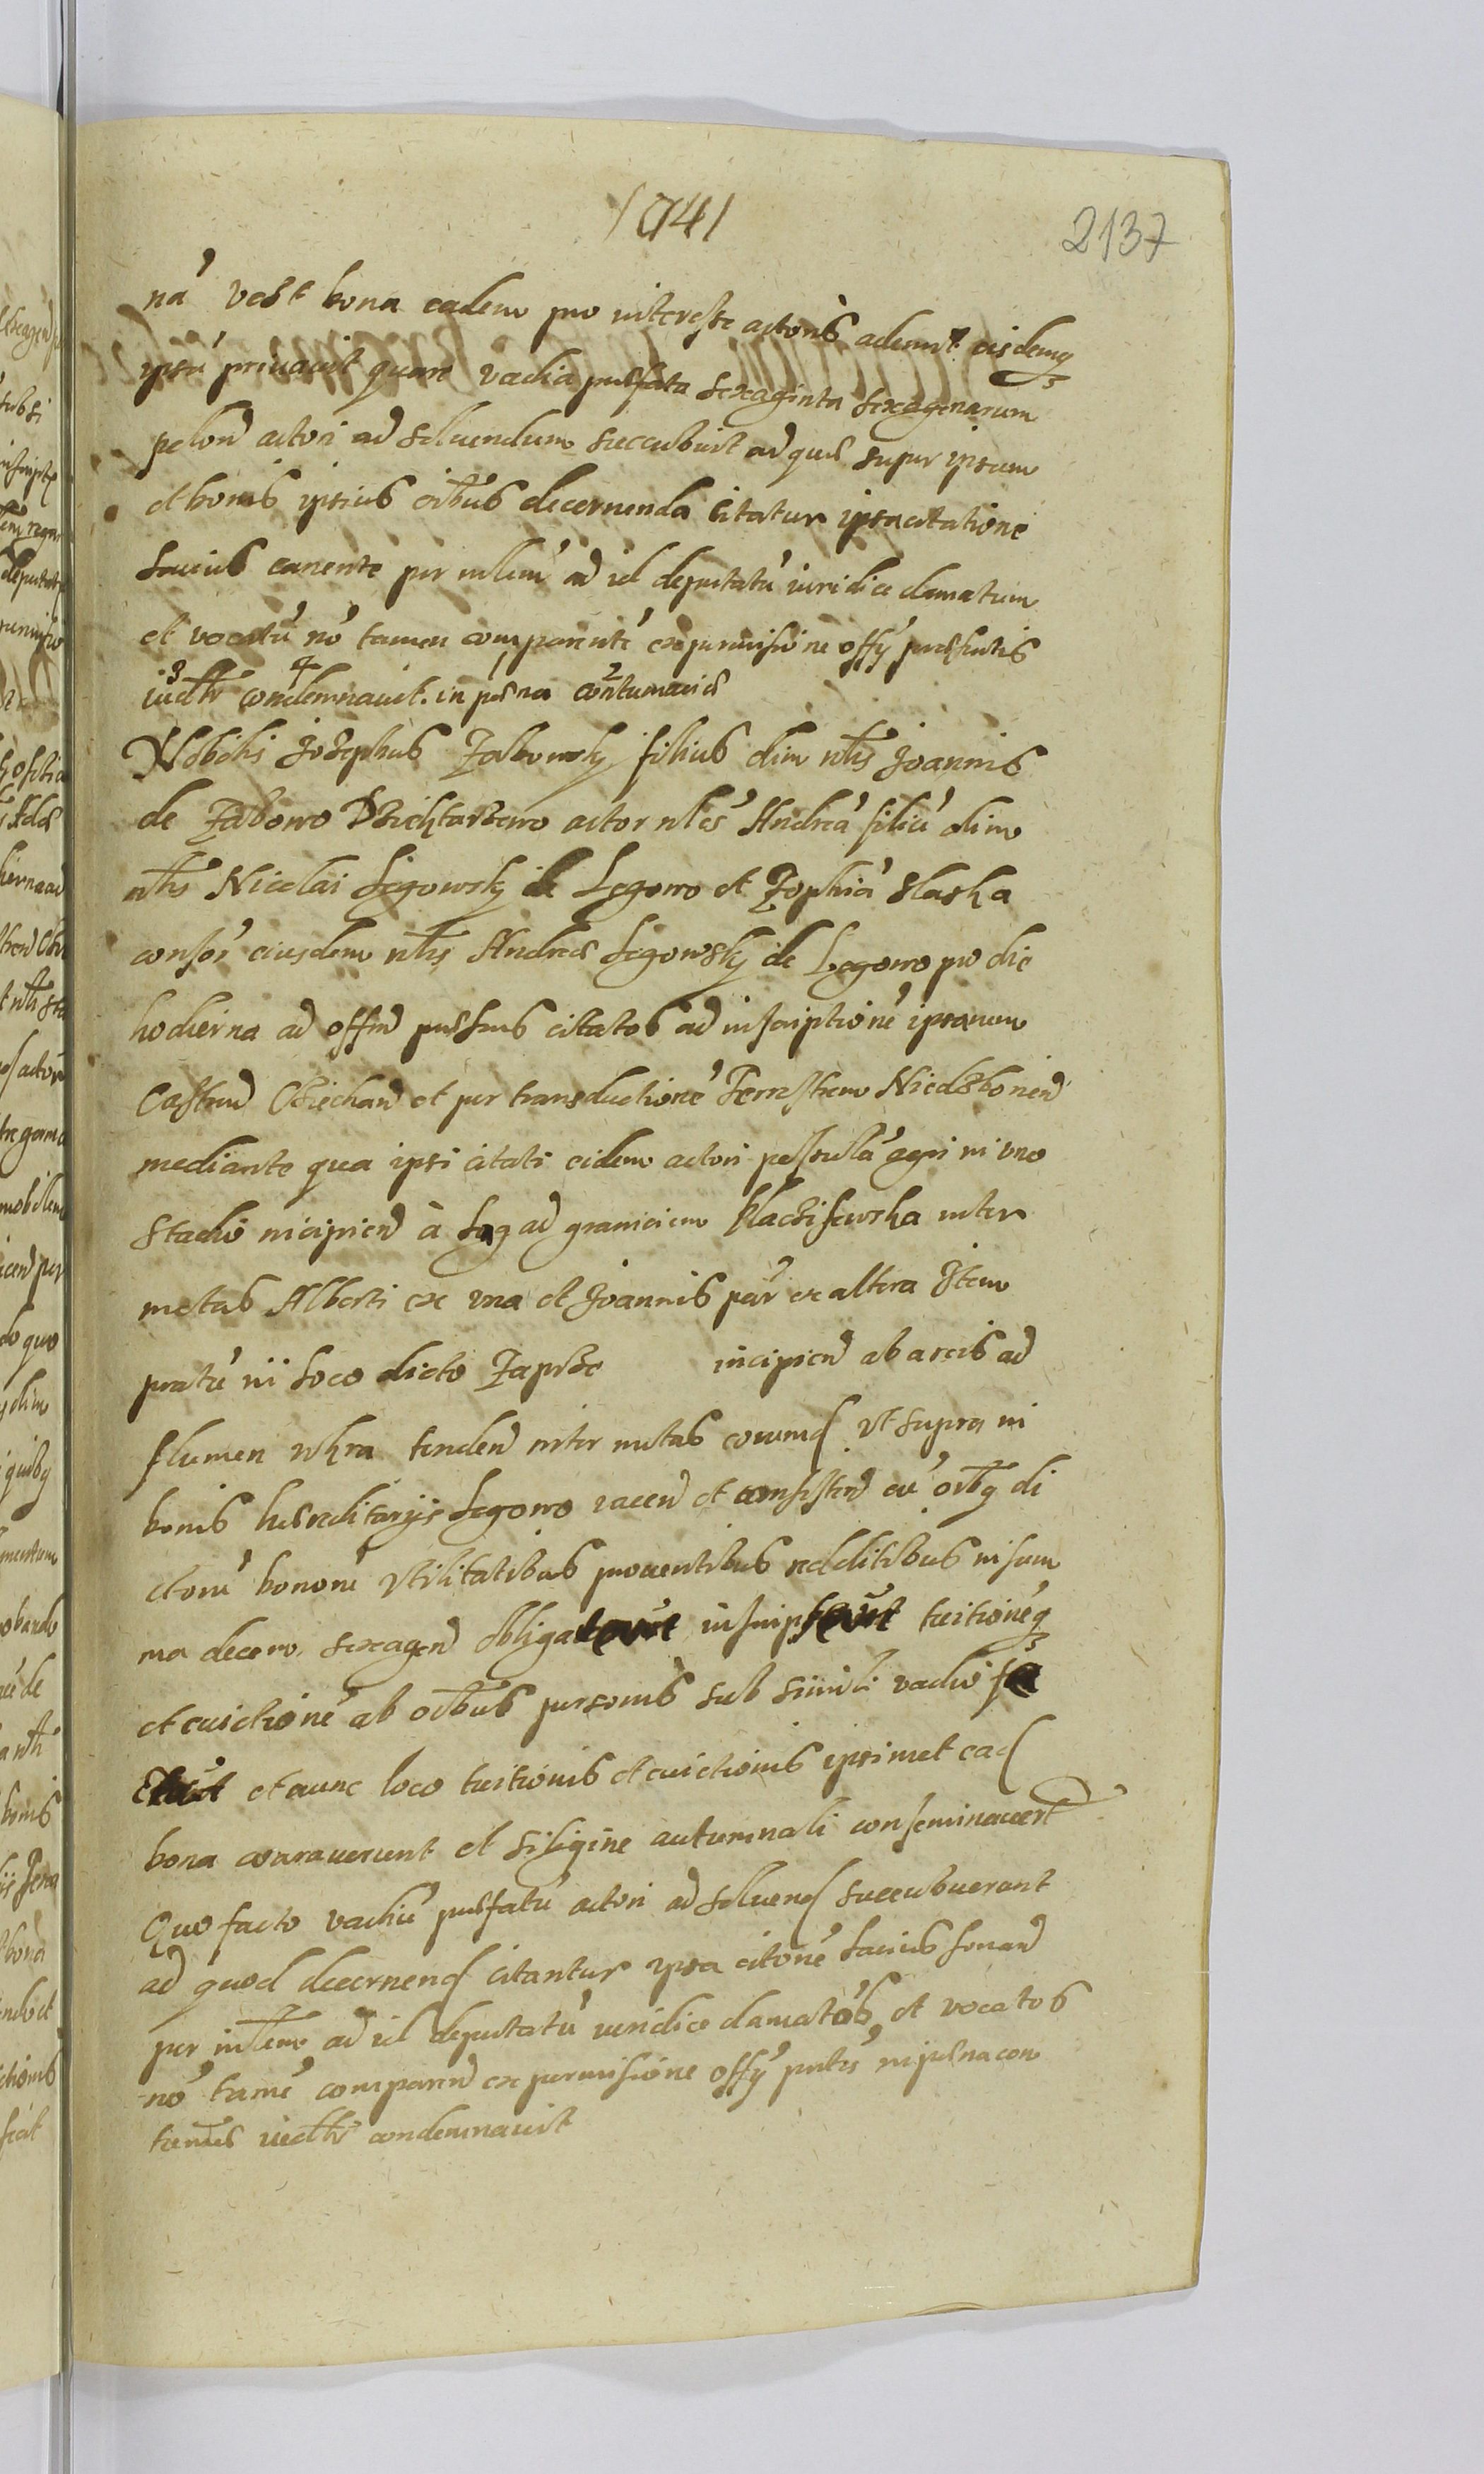 1041
2137
ná vest bona eadem pro interesse actoris ademit eisdemq
ipsū privavit quare vadia praefata sexaginta sexagenarum
polond actori ad solvendum succubuit ad quae super ipsum
et bonis ipsius oibus decernenda citatur ipsa citatione
Latius canente per mlem ad id deputatū iuridice clamatum
et vocatū nō tamen comparentē ex permissione offy praesentis
iudtr condemnavit in paena contumaciae
Nobilis Josephus Zabowsky filius olim nlis Joannis
de Zabowo Dzichtarzewo actor nles Andreā filiū olim
nlis Nicolai Legowsky de Legowo et Zophiā Slaska
consor eiusdem nlis Andreae Legowsky de Legowo pro die
hodierna ad offm praesens citatos ad inscriptionē ipsorum
Castren Ciechan et per transductionē Terrestrem Niedzbonen
mediante qua ipsi citati eidem actori pessulā agri in uno
stadio incipien à Lug ad graniciem Klaczisewska inter
metas Alberti ex una et Joannis par ex altera Item
pratū in loco dicto Zaprze incipien ab areis ad
flumen Wkra tenden inter metas eorund ut supra in
bonis haereditarijs Legowo iacen et consisten cū oibq di
ctorū bonorū utilitatibus proventibus redditibus in sum
ma decem sexagen Obliga inscrip tuitionēq
et evictionē ab oibus personis sub simili vadio
et nunc loco tuitionis et evictionis ipsimet ead
bona coaraverunt et siligine autumnali conseminavert
Quo facto vadiū praefatū actori ad solvend succubuerant
ad quod decernend citantur ipsa citone Latius sonand
per mlem ad id deputatū iuridice clamatos et vocatos
nō tamē comparen ex permissione offy pntis in paena con
tumae iudtr condemnavit